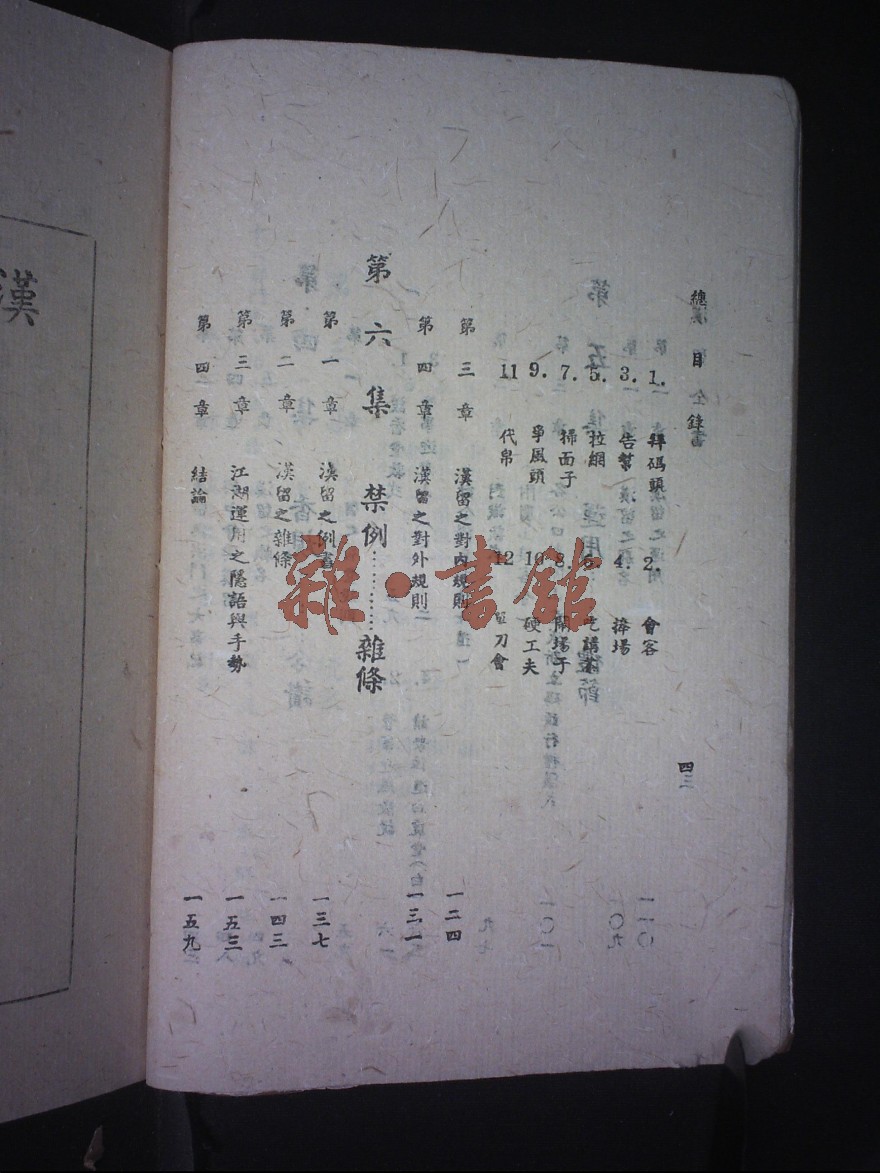 總目錄
四三
1. 拜碼頭 2. 會客 一一〇
3. 告幫 4. 捧場
5. 拉網 6. 吃講茶
7. 掃面子 8. 開場子
9. 爭風頭 10 硬工夫
11 代帛 12 單刀會
第三章 漢留之對內規則 一二四
第四章 漢留之對外規則 一三一
第六集 禁例…………雜條
第一章 漢留之例書 一三七
第二章 漢留之雜條 一四三
第三章 江湖運用之隱語與手勢 一五三
第四章 結論 一五九
雜·書館
漢